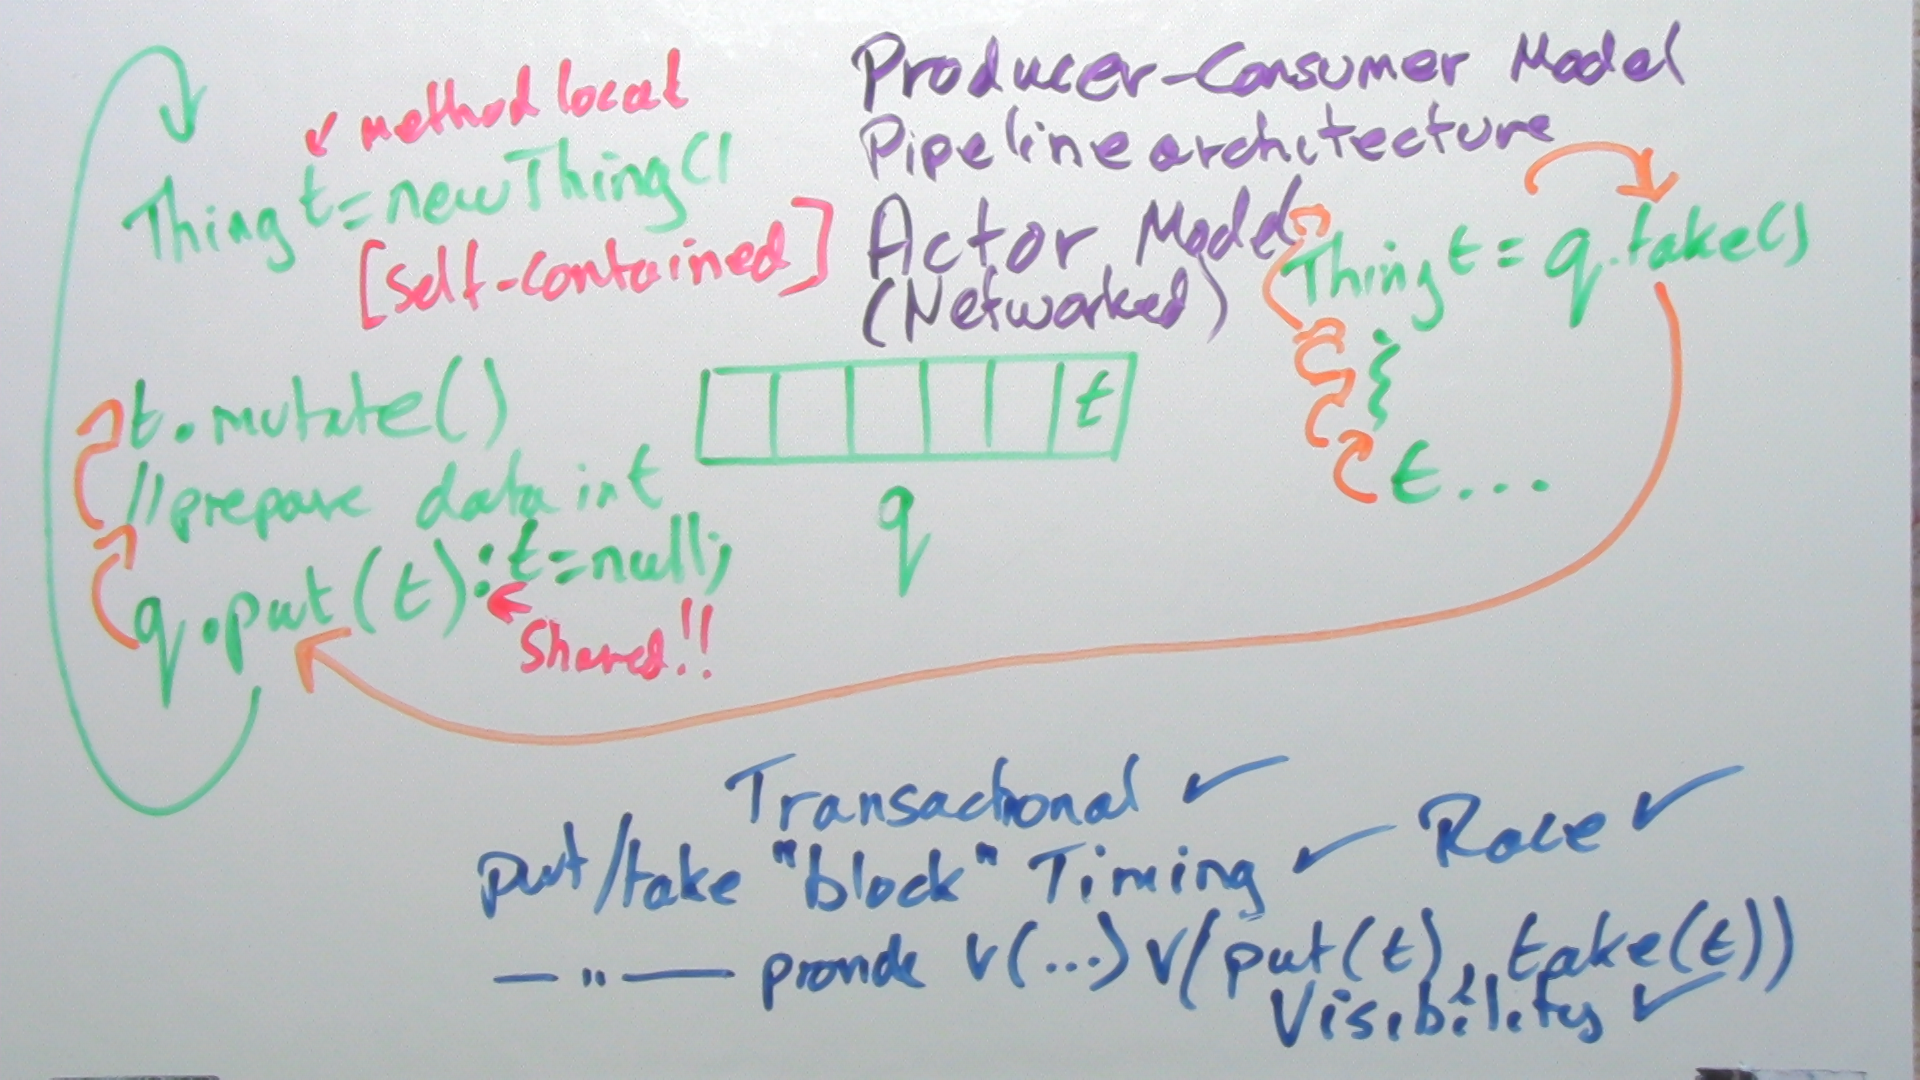 Producer-Consumer Model
Pipeline architecture
Actor Model
(Networked)
method local
Thing t = new Thing()
[Self-contained]
t.mutate()
// prepare data in t
q.put(t); t=null;
Shared!!
t
q
Thing t = q.take()
t...
Transactional ✓
put/take "block" Timing ✓ Race ✓
— " — provide v(...) v(put(t), take(t))
Visibility ✓